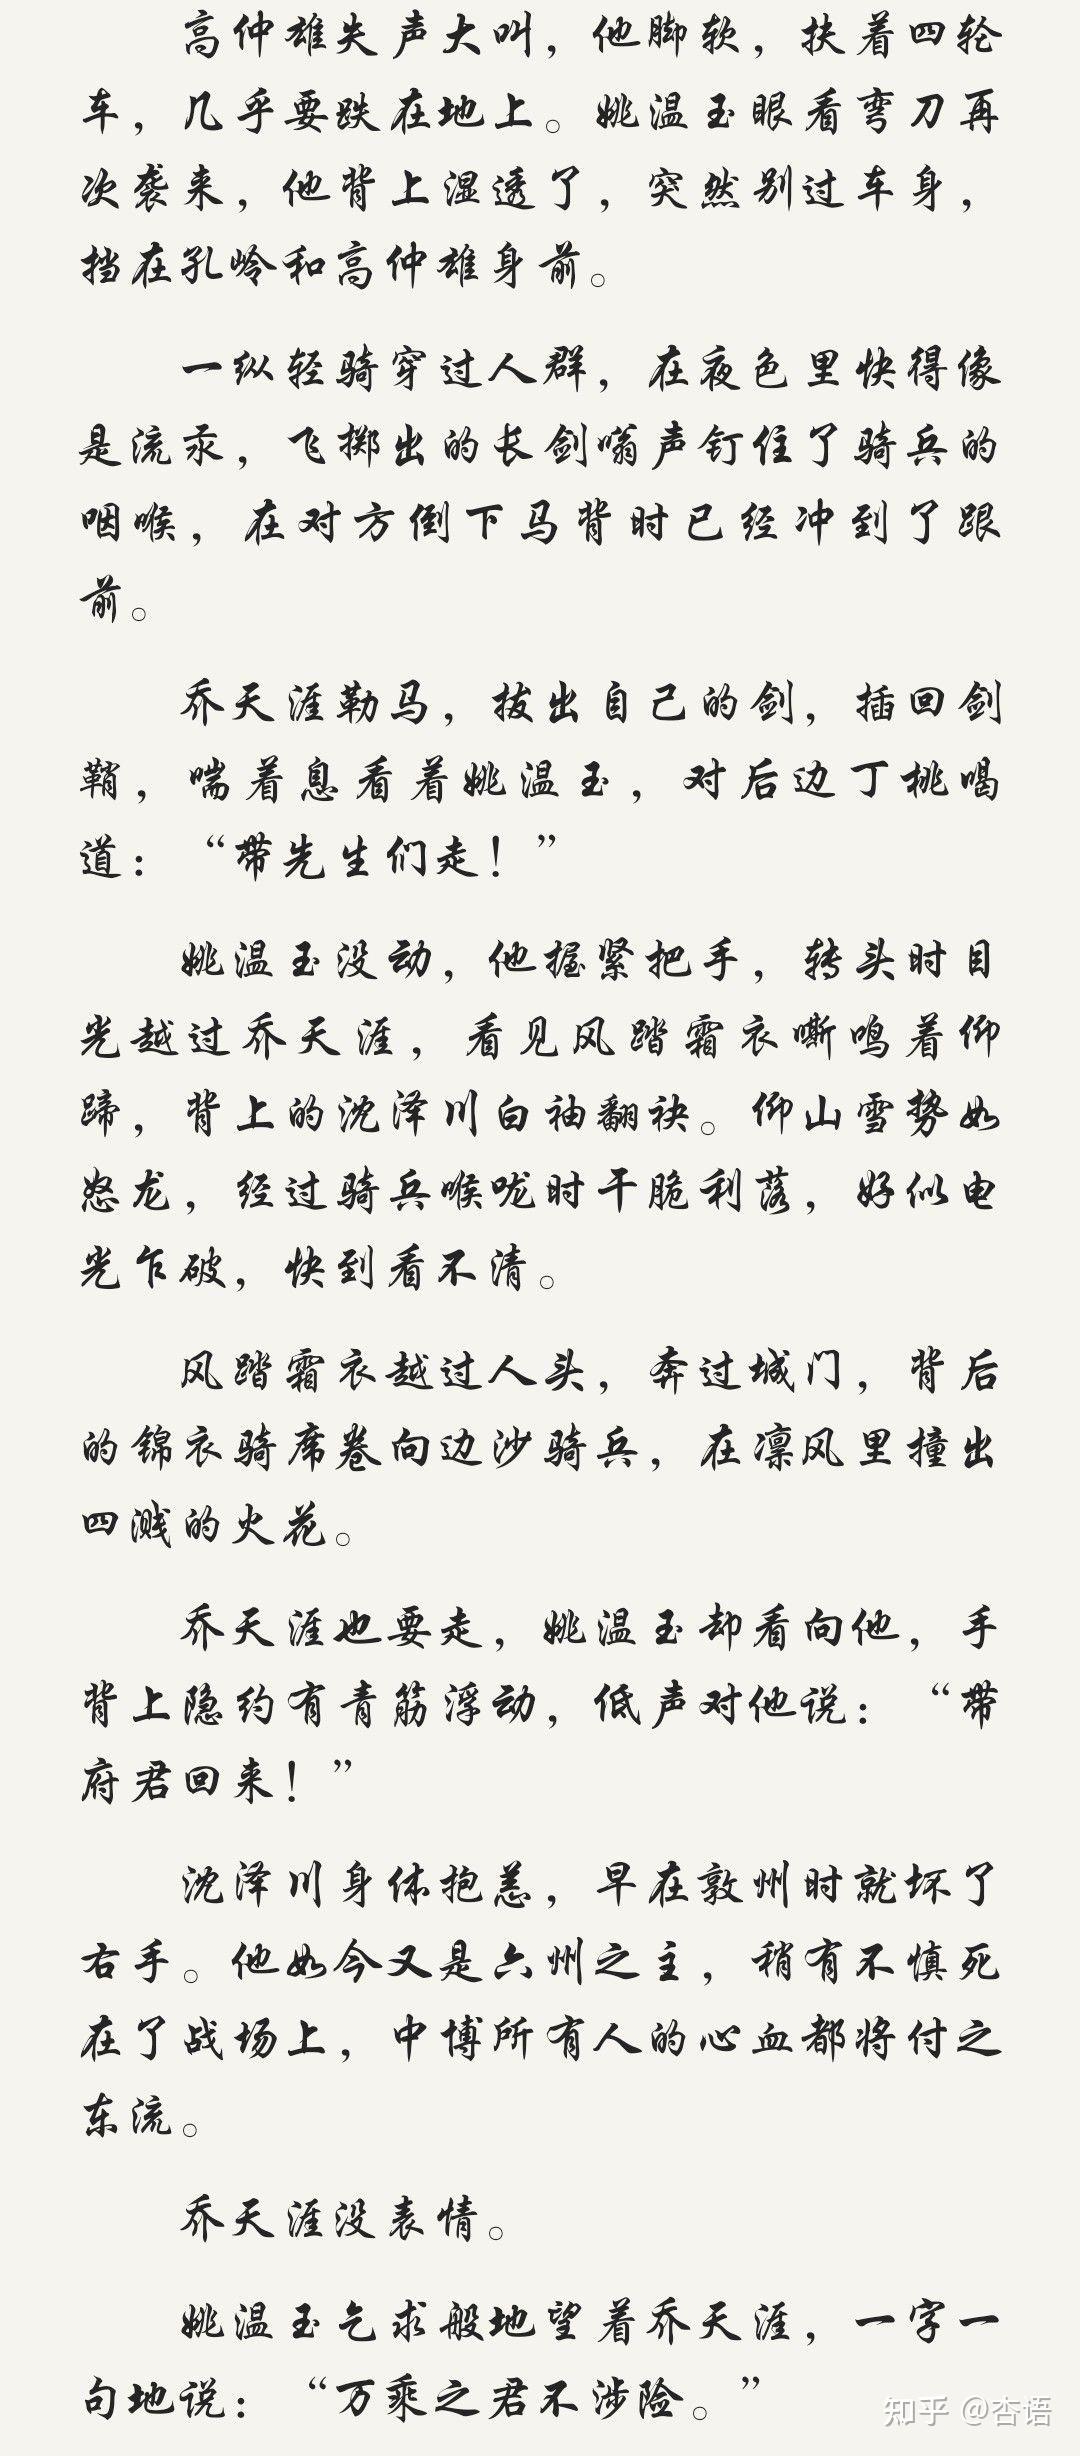 高仲雄失声大叫，他脚软，扶着四轮
车，几乎要跌在地上。姚温玉眼看弯刀再
次袭来，他背上湿透了，突然别过车身，
挡在孔岭和高仲雄身前。
一纵轻骑穿过人群，在夜色里快得像
是流汞，飞掷出的长剑嗡声钉住了骑兵的
咽喉，在对方倒下马背时已经冲到了跟
前。
乔天涯勒马，拔出自己的剑，插回剑
鞘，喘着息看着姚温玉，对后边丁桃喝
道：“带先生们走！”
姚温玉没动，他握紧把手，转头时目
光越过乔天涯，看见风踏霜衣嘶鸣着仰
蹄，背上的沈泽川白袖翻袂。仰山雪势如
怒龙，经过骑兵喉咙时干脆利落，好似电
光乍破，快到看不清。
风踏霜衣越过人头，奔过城门，背后
的锦衣骑席卷向边沙骑兵，在凛风里撞出
四溅的火花。
乔天涯也要走，姚温玉却看向他，手
背上隐约有青筋浮动，低声对他说：“带
府君回来！”
沈泽川身体抱恙，早在敦州时就坏了
右手。他如今又是六州之主，稍有不慎死
在了战场上，中博所有人的心血都将付之
东流。
乔天涯没表情。
姚温玉乞求般地望着乔天涯，一字一
句地说：“万乘之君不涉险。”
知乎 @杏语